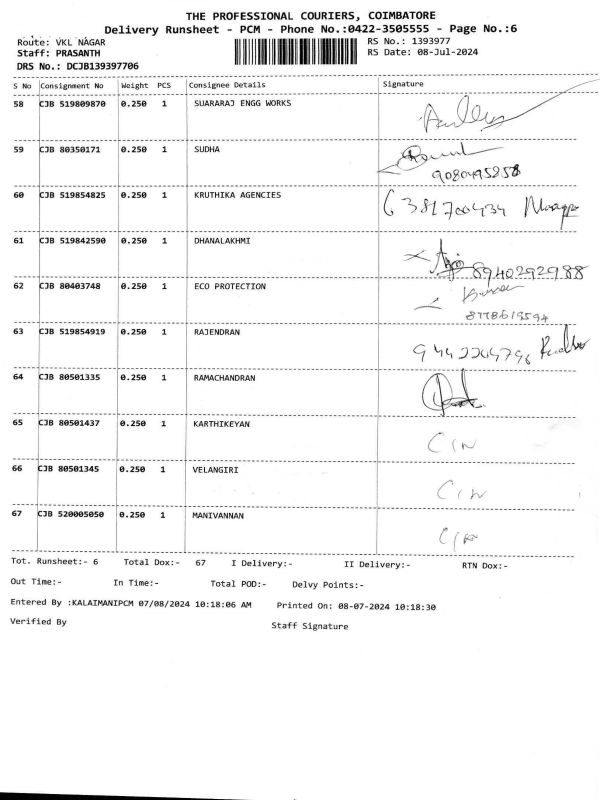 THE PROFESSIONAL COURIERS, COIMBATORE
Delivery Runsheet - PCM - Phone No.:0422-3505555 - Page No.:6
Route: VKL NAGAR
RS No.: 1393977
Staff: PRASANTH
RS Date: 08-Jul-2024
DRS No.: DCJB139397706
S No Consignment No Weight PCS Consignee Details Signature
58 CJB 519809870 0.250 1 SUARARAJ ENGG WORKS
59 CJB 80350171 0.250 1 SUDHA
9080495258
60 CJB 519854825 0.250 1 KRUTHIKA AGENCIES
6381700434
61 CJB 519842590 0.250 1 DHANALAKHMI
8940292988
62 CJB 80403748 0.250 1 ECO PROTECTION
8778619594
63 CJB 519854919 0.250 1 RAJENDRAN
64 CJB 80501335 0.250 1 RAMACHANDRAN
65 CJB 80501437 0.250 1 KARTHIKEYAN
C/N
66 CJB 80501345 0.250 1 VELANGIRI
C/N
67 CJB 520005050 0.250 1 MANIVANNAN
C/N
Tot. Runsheet:- 6 Total Dox:- 67 I Delivery:- II Delivery:- RTN Dox:-
Out Time:- In Time:- Total POD:- Delvy Points:-
Entered By :KALAIMANIPCM 07/08/2024 10:18:06 AM Printed On: 08-07-2024 10:18:30
Verified By
Staff Signature